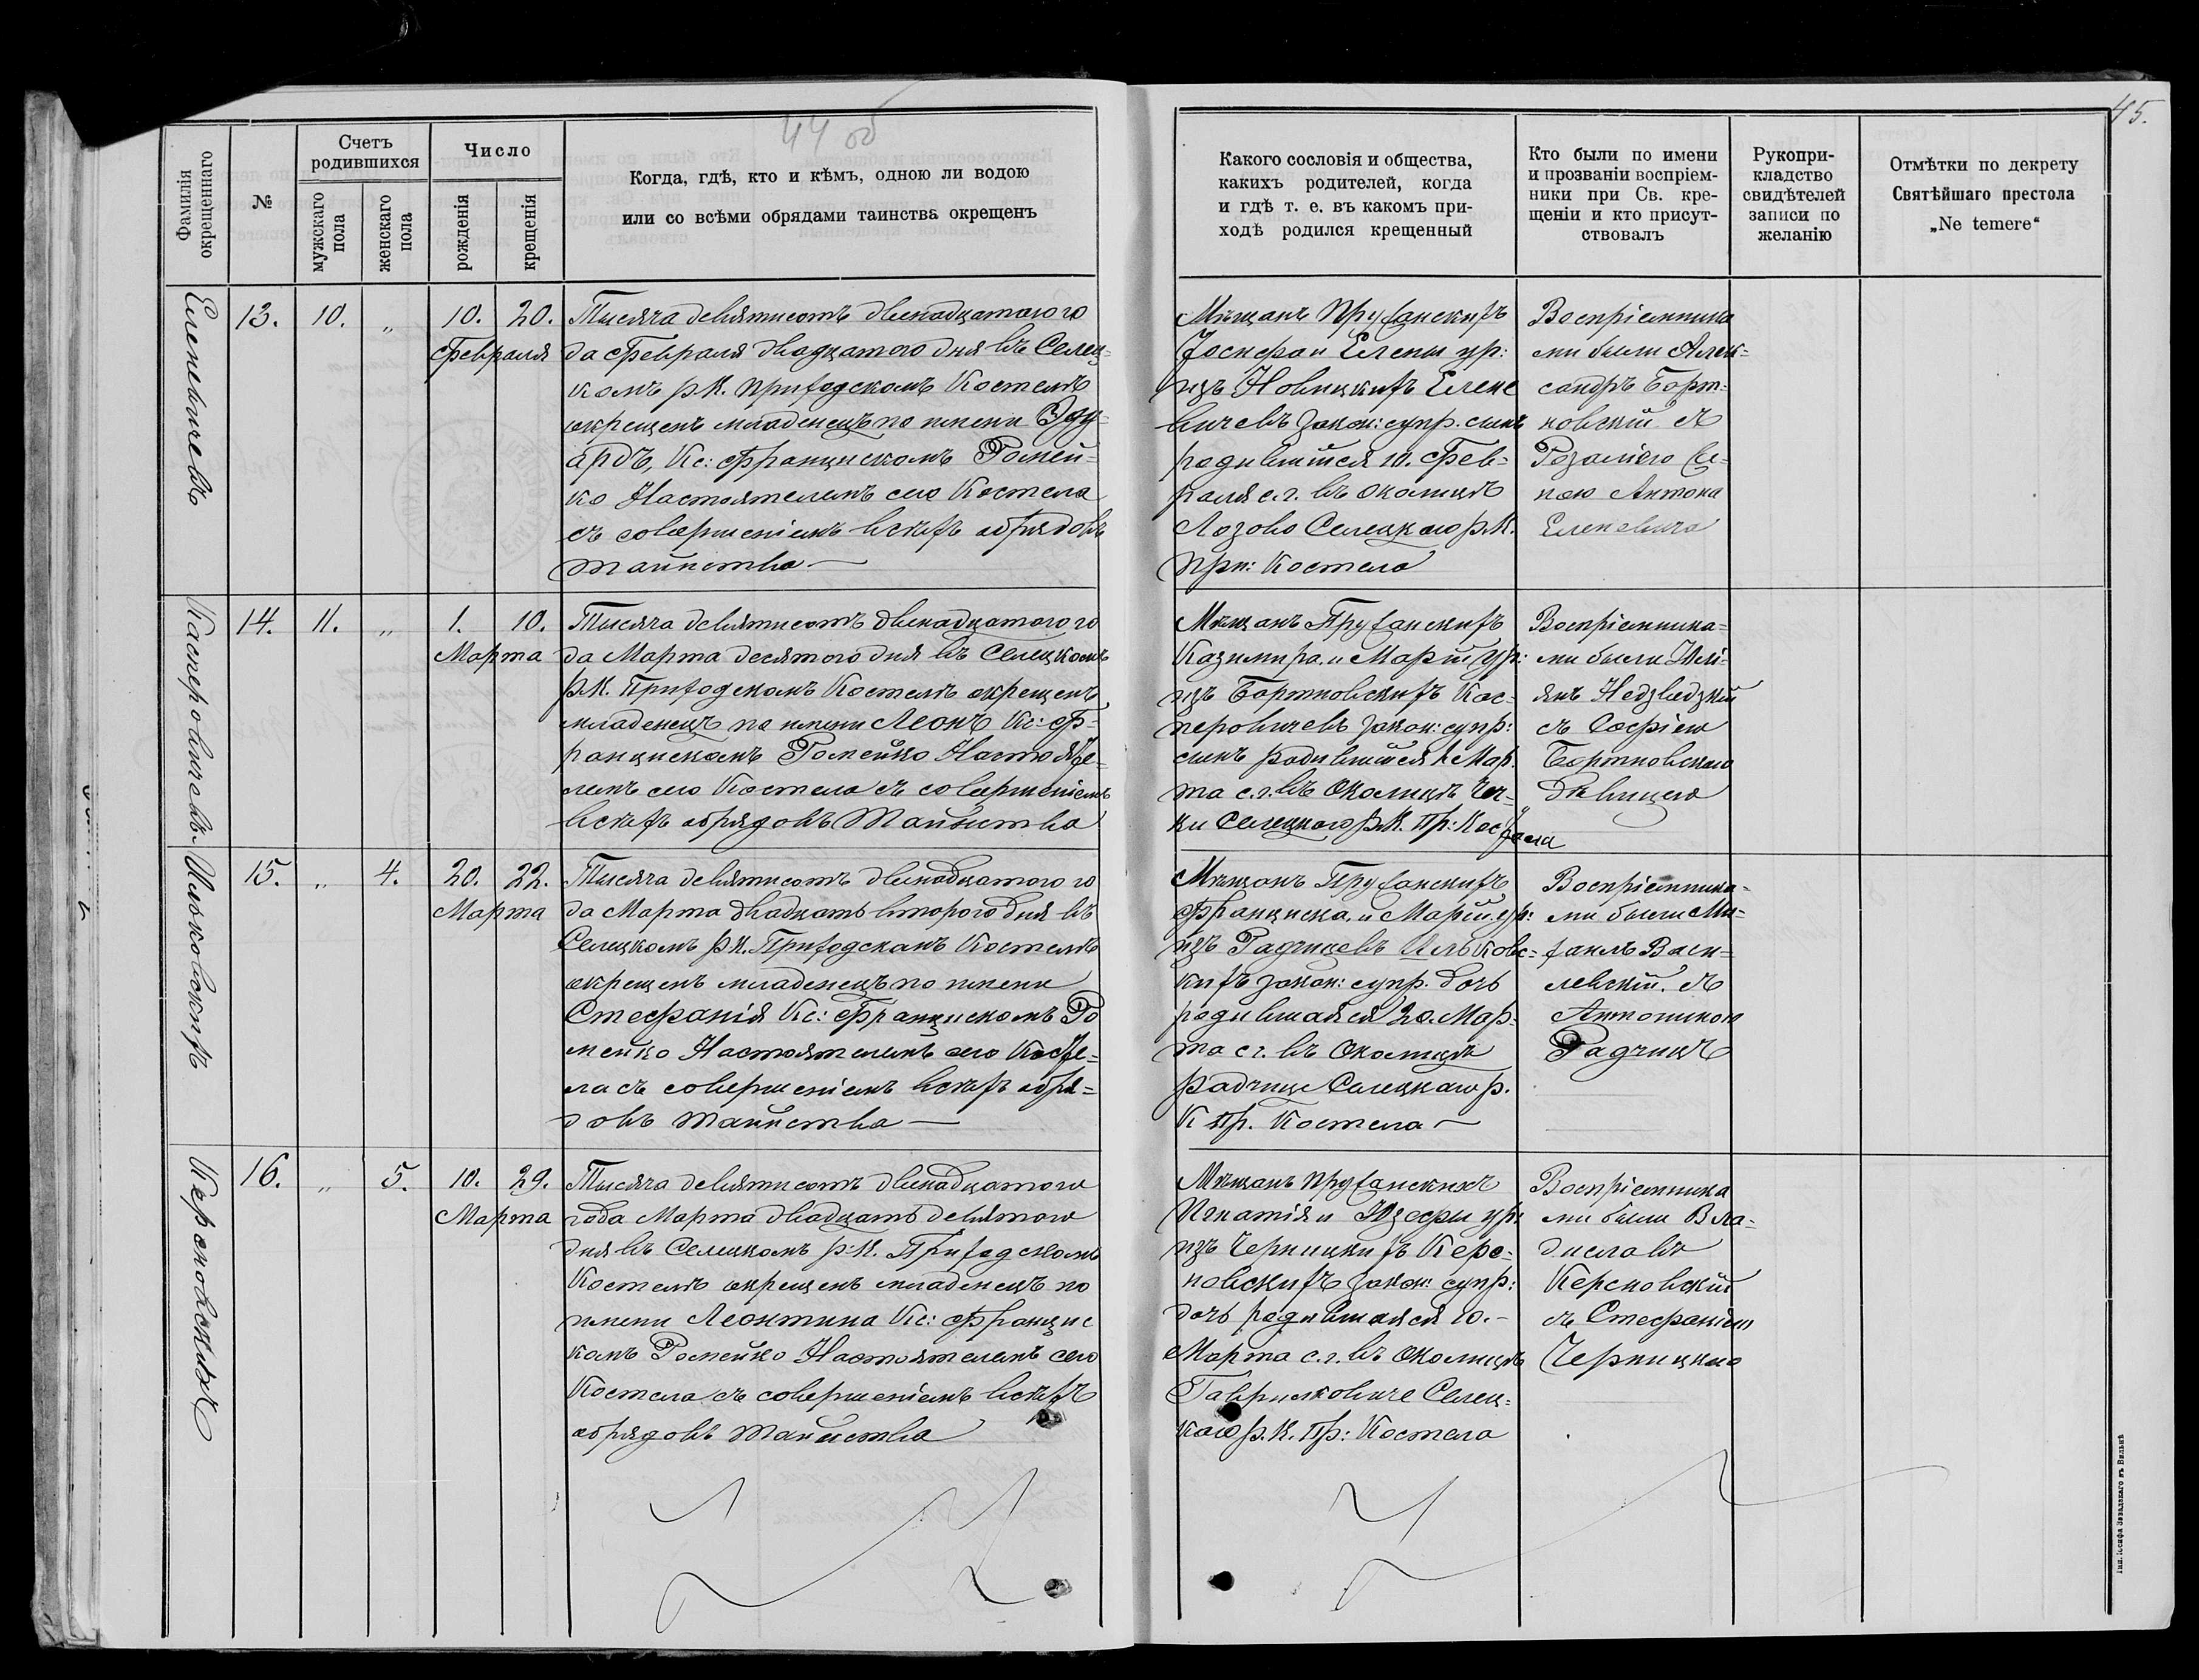 44 об
45.
Фамилія окрещеннаго
№
Счетъ родившихся
мужскаго пола
женскаго пола
Число
рожденія
крещенія
Когда, гдѣ, кто и кѣмъ, одною ли водою
или со всѣми обрядами таинства окрещенъ
Какого сословія и общества,
какихъ родителей, когда
и гдѣ т. е. въ какомъ при-
ходѣ родился крещенный
Кто были по имени
и прозваніи воспріем-
ники при Св. кре-
щеніи и кто присут-
ствовалъ
Рукопри-
кладство
свидѣтелей
записи по
желанію
Отмѣтки по декрету
Святѣйшаго престола
„Ne temere“
Еленевичевъ
13. 10. „ 10. 20.
Февраля
Тысяча девятисотъ двенадцатого го
да Февраля двадцатого дня въ Селец-
комъ р.К. приходскомъ Костелѣ
окрещенъ младенецъ по имени Эду-
ардъ, Кс: Францискомъ Ромей-
ко Настоятелемъ сего Костела
съ совершеніемъ всѣхъ обрядовъ
таинства —
Мѣщанъ Пружанскихъ
Іосифа и Елены ур:
изъ Новицкихъ Елене
вичевъ закон: супр. сынъ
родившійся 10. Фев-
раля с.г. въ околицѣ
Лозово Селецкаго р.К.
при: Костела
Воспріемника
ми были Алек-
сандръ Борт-
новскій съ
Розаліею
ною Антона
Еленевича
Касперовичевъ
14. 11. „ 1. 10.
Марта
Тысяча девятисотъ двенадцатого го
да Марта десятого дня въ Селецкомъ
р.К. Приходскомъ Костелѣ окрещенъ
младенецъ по имени Леонъ Кс: Ф-
ранцискомъ Ромейко Настояте-
лемъ сего Костела съ совершеніемъ
всѣхъ обрядовъ Таинства
Мѣщанъ Пружанскихъ
Казимира и Маріи ур:
изъ Бортновскихъ Кас-
перовичевъ закон: супр:
сынъ родившійся 1 Мар-
та с.г. въ Околицѣ
ки Селецкого р.К. Пр: Костела
Воспріемника-
ми были Юлі-
янъ Недзведзкій
съ Софіею
Бортновскою
Дѣвицею
Ильковскихъ
15. „ 4. 20. 22.
Марта
Тысяча девятисотъ двенадцатого го
да Марта двадцать второго дня въ
Селецкомъ р.К. Приходскомъ Костелѣ
окрещенъ младенецъ по имени
Стефанія Кс: Францискомъ Ро
мейко Настоятелемъ сего Косте-
ла съ совершеніемъ всѣхъ обря-
довъ таинства —
Мѣщанъ Пружанскихъ
Франциска и Маріи ур:
изъ Радчицевъ Ильковс-
кихъ закон: супр. дочь
родившаяся 20. Мар-
та с г. въ Околицѣ
Радчице Селецкаго р.
К Пр. Костела —
Воспріемника-
ми были Ми-
хаилъ Васи-
левскій съ
Антониною
Радчицъ
Керсновскихъ
16. „ 5. 10. 29.
Марта
Тысяча девятисотъ двенадцатого
года Марта двадцать девятого
дня въ Селецкомъ р.К. Приходскомъ
Костелѣ окрещенъ младенецъ по
имени Леонтина Кс: Францис
комъ Ромейко Настоятелемъ сего
Костела съ совершеніемъ всѣхъ
обрядовъ Таинства
Мѣщанъ Пружанскихъ
Игнатія и Юзефы ур:
изъ Черницкихъ Керс-
новскихъ закон: супр:
дочь родившаяся 10. –
Марта с.г. въ Околицѣ
Гавриловиче Селец-
каго р.К. Пр: Костела
Воспріемника
ми были Вла-
диславъ
Керсновскій
съ Стефаніею
Черницкою